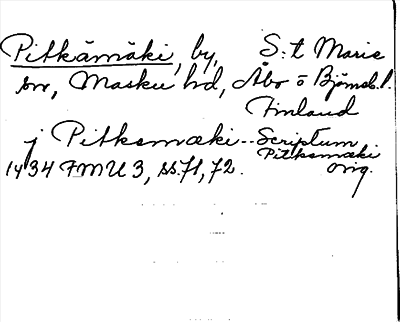 Pitkämäki, by, S:t Marie
sn, Masku hd, Åbo o Björneb. l.
Finland
j Pitksmæki -- Scriptum
Pitksmæki
1434 FMU 3, ss. 71, 72. orig.